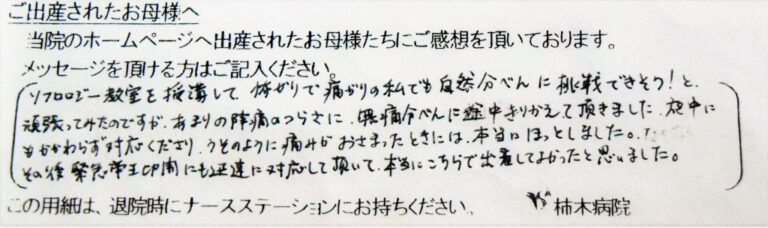 ご出産されたお母様へ
当院のホームページへ出産されたお母様たちにご感想を頂いております。
メッセージを頂ける方はご記入ください。
ソフロロジー教室を授講して、怖がりで痛がりの私でも自然分べんに挑戦できそう!と、
頑張ってみたのですが、あまりの陣痛のつらさに、無痛分べんに途中きりかえて頂きました。夜中に
もかかわらず対応くださり、うそのように痛みがおさまったときには、本当にほっとしました。
その後緊急帝王切開にも迅速に対応して頂いて、本当にこちらで出産してよかったと思いました。
この用紙は、退院時にナースステーションにお持ちください。 柿木病院